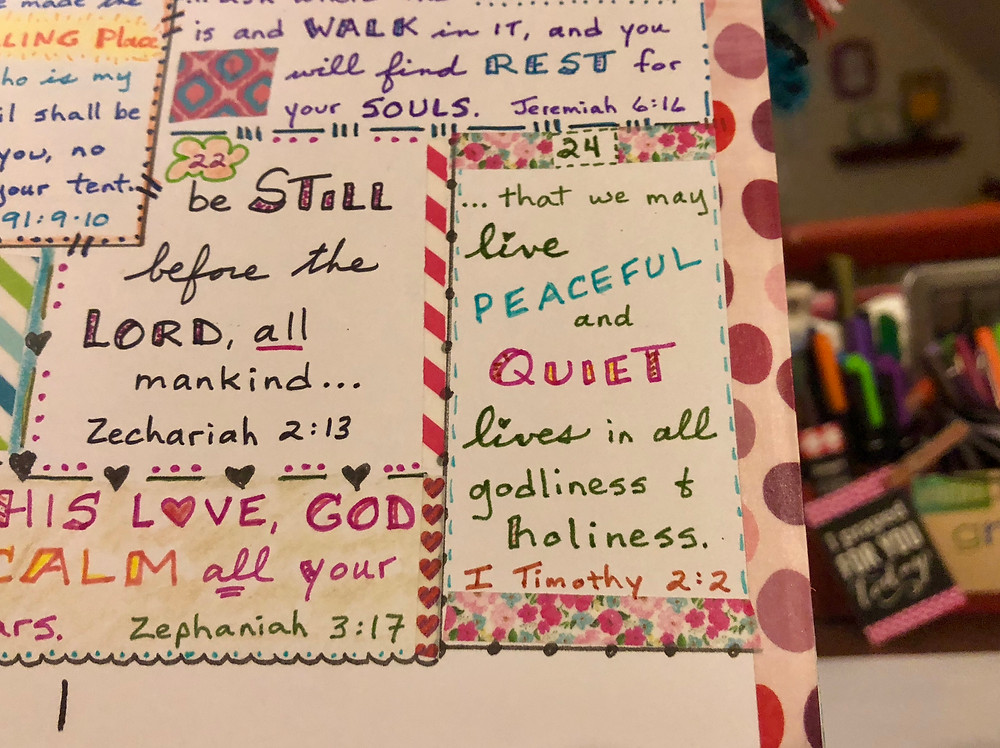 made the
LLING Place
who is my
shall be
you, no
your tent.
91:9-10
... ask where the
is and WALK in IT, and you
will find REST for
your SOULS. Jeremiah 6:16
22
be STILL
before the
LORD, all
mankind...
Zechariah 2:13
HIS LOVE, GOD
CALM all your
ars. Zephaniah 3:17
24
... that we may
live
PEACEFUL
and
QUIET
lives in all
godliness &
holiness.
I Timothy 2:2
I prayed
FOR YOU
today